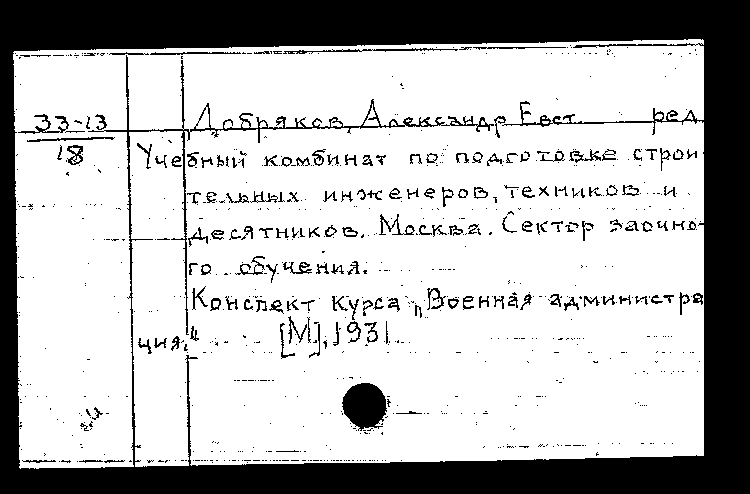 33-13
18
Добряков, Александр Евст. ред
Учебный комбинат по подготовке строи-
тельных инженеров, техников и
десятников. Москва. Сектор заочно-
го обучения.
Конспект курса „Военная администра
ция." [М], 1931